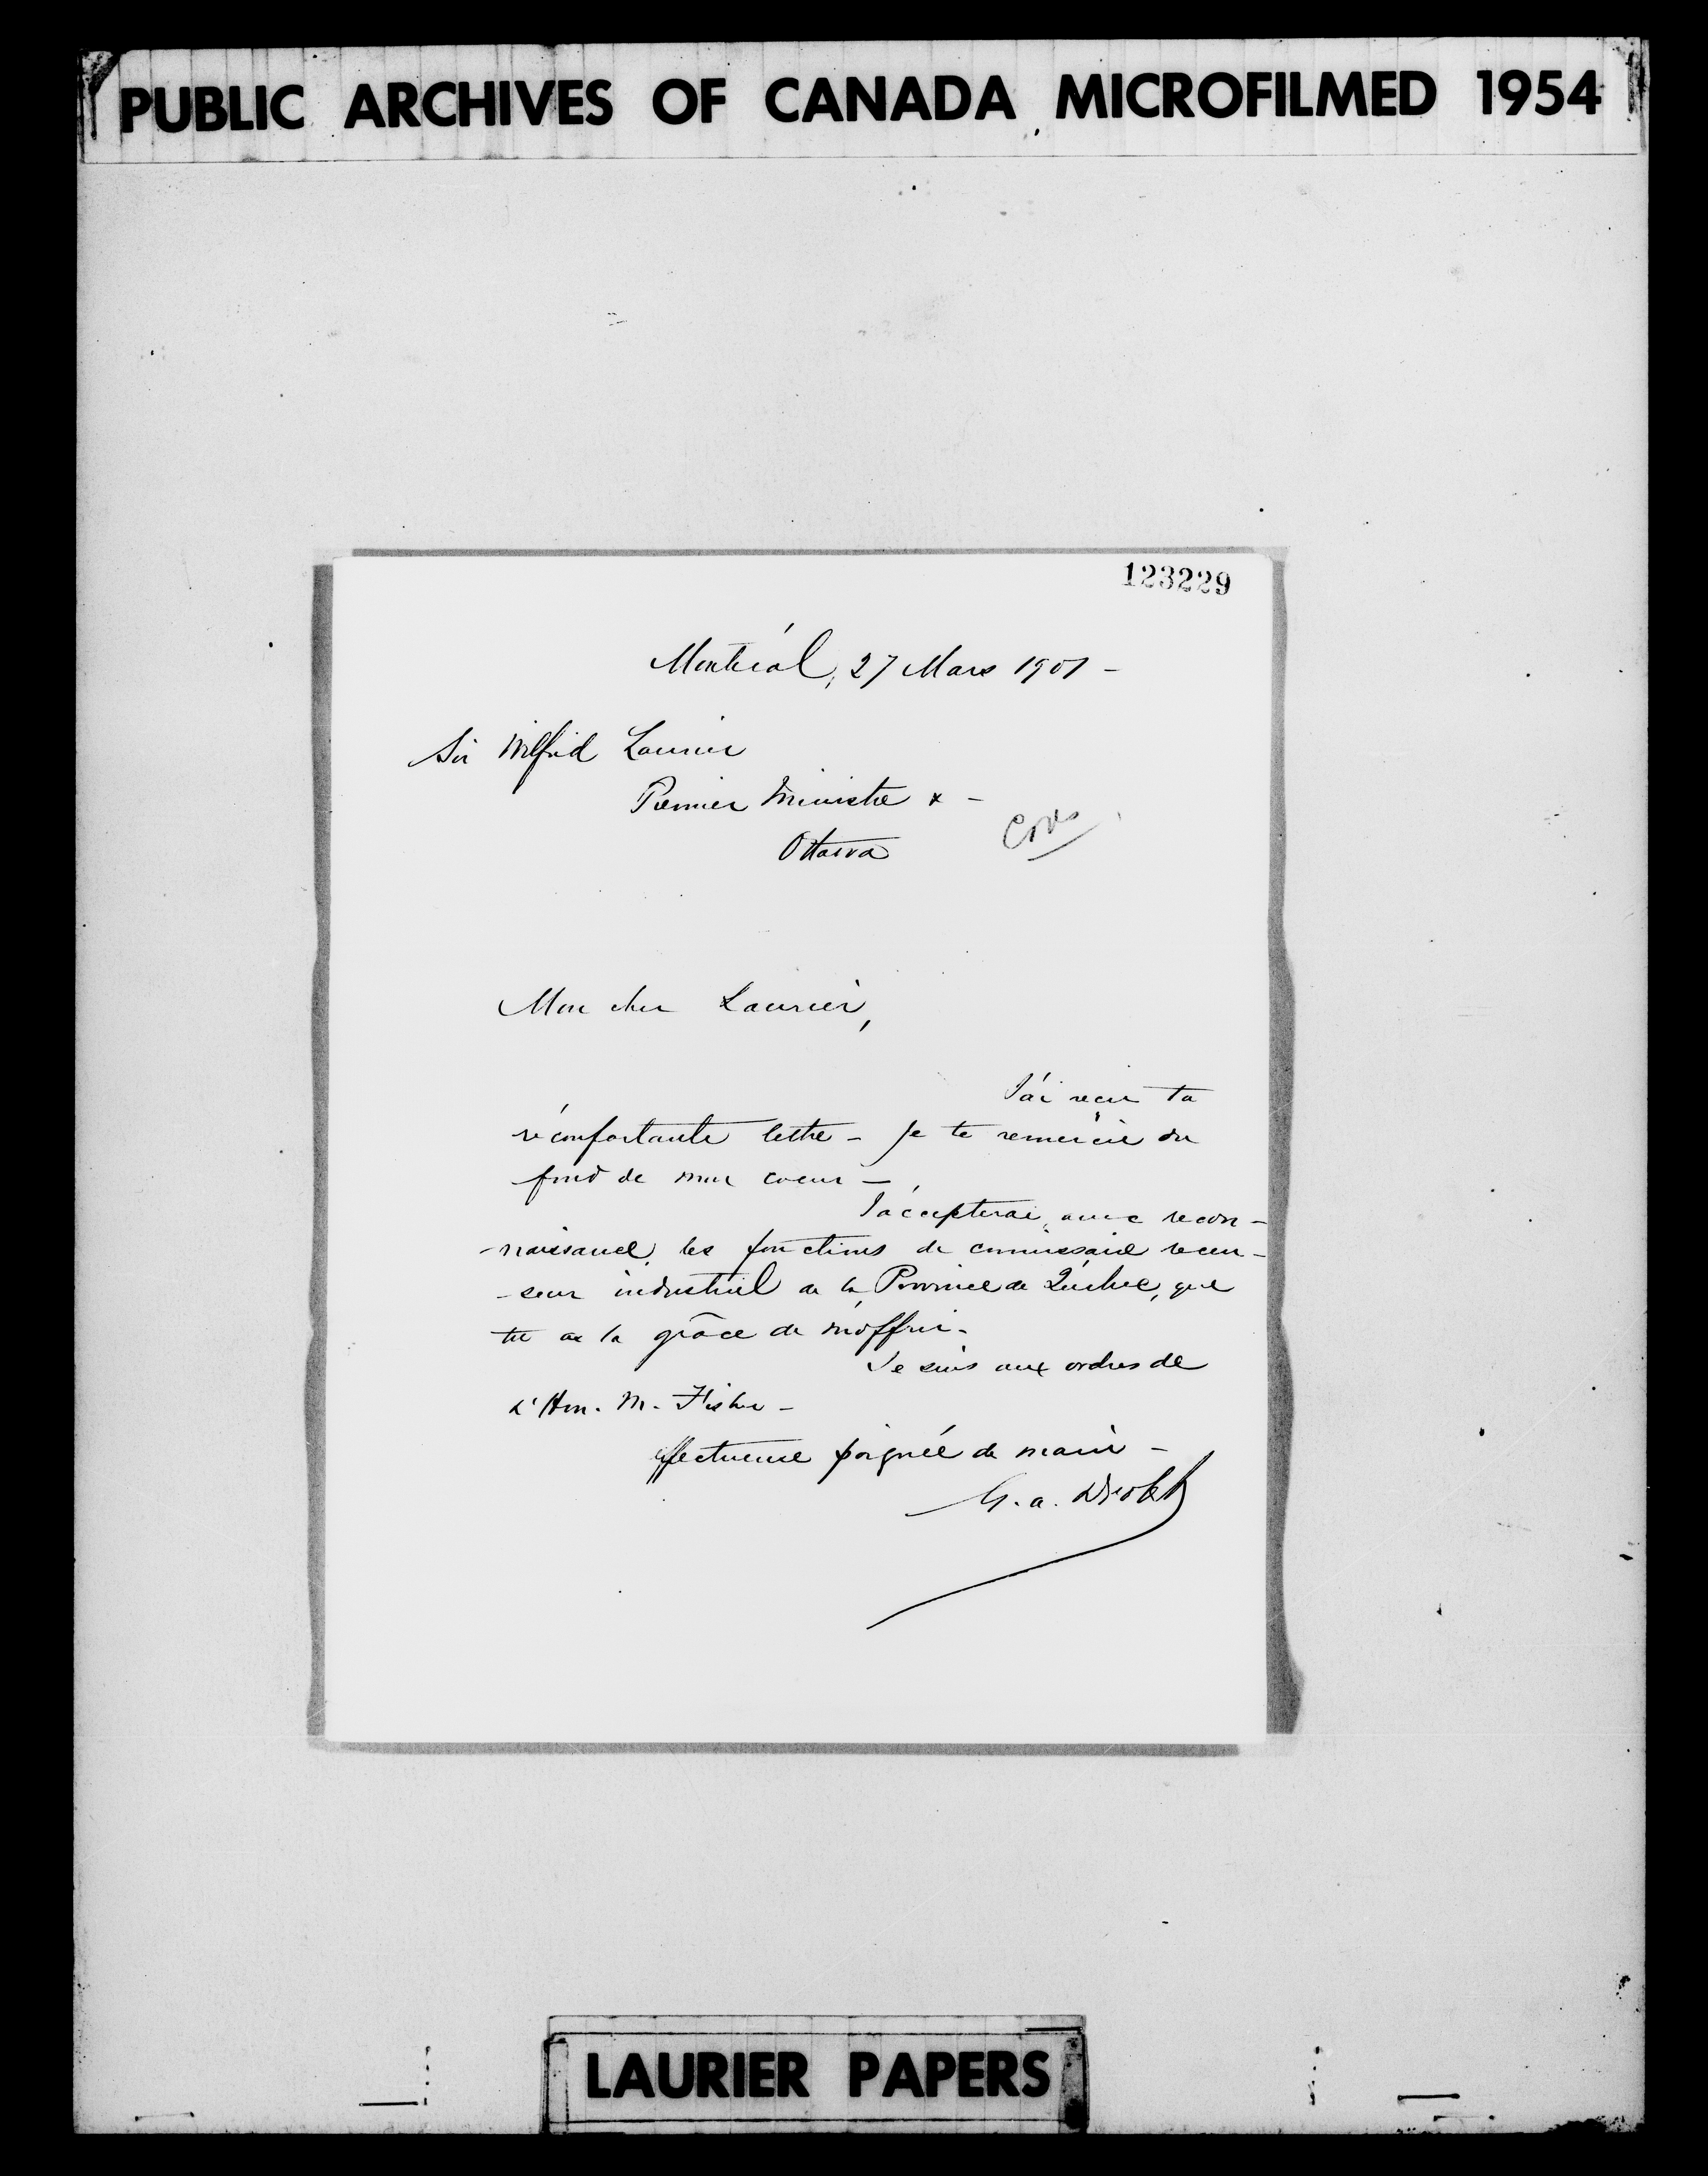 PUBLIC ARCHIVES OF CANADA MICROFILMED 1954
123229
Montréal, 27 Mars 1901 -
Sir Wilfrid Laurier
Premier Ministre & -
Ottawa
Mon cher Laurier,
J'ai reçu ta
réconfortante lettre - Je te remercie du
fond de mon coeur -
J'accepterai, avec recon-
-naissance, les fonctions de commissaire recen-
-seur industriel de la Province de Québec, que
tu as la grâce de m'offrir -
Je suis aux ordres de
L'Hon. M. Fisher -
affectueuse poignée de main -
G. A. Drolet
LAURIER PAPERS